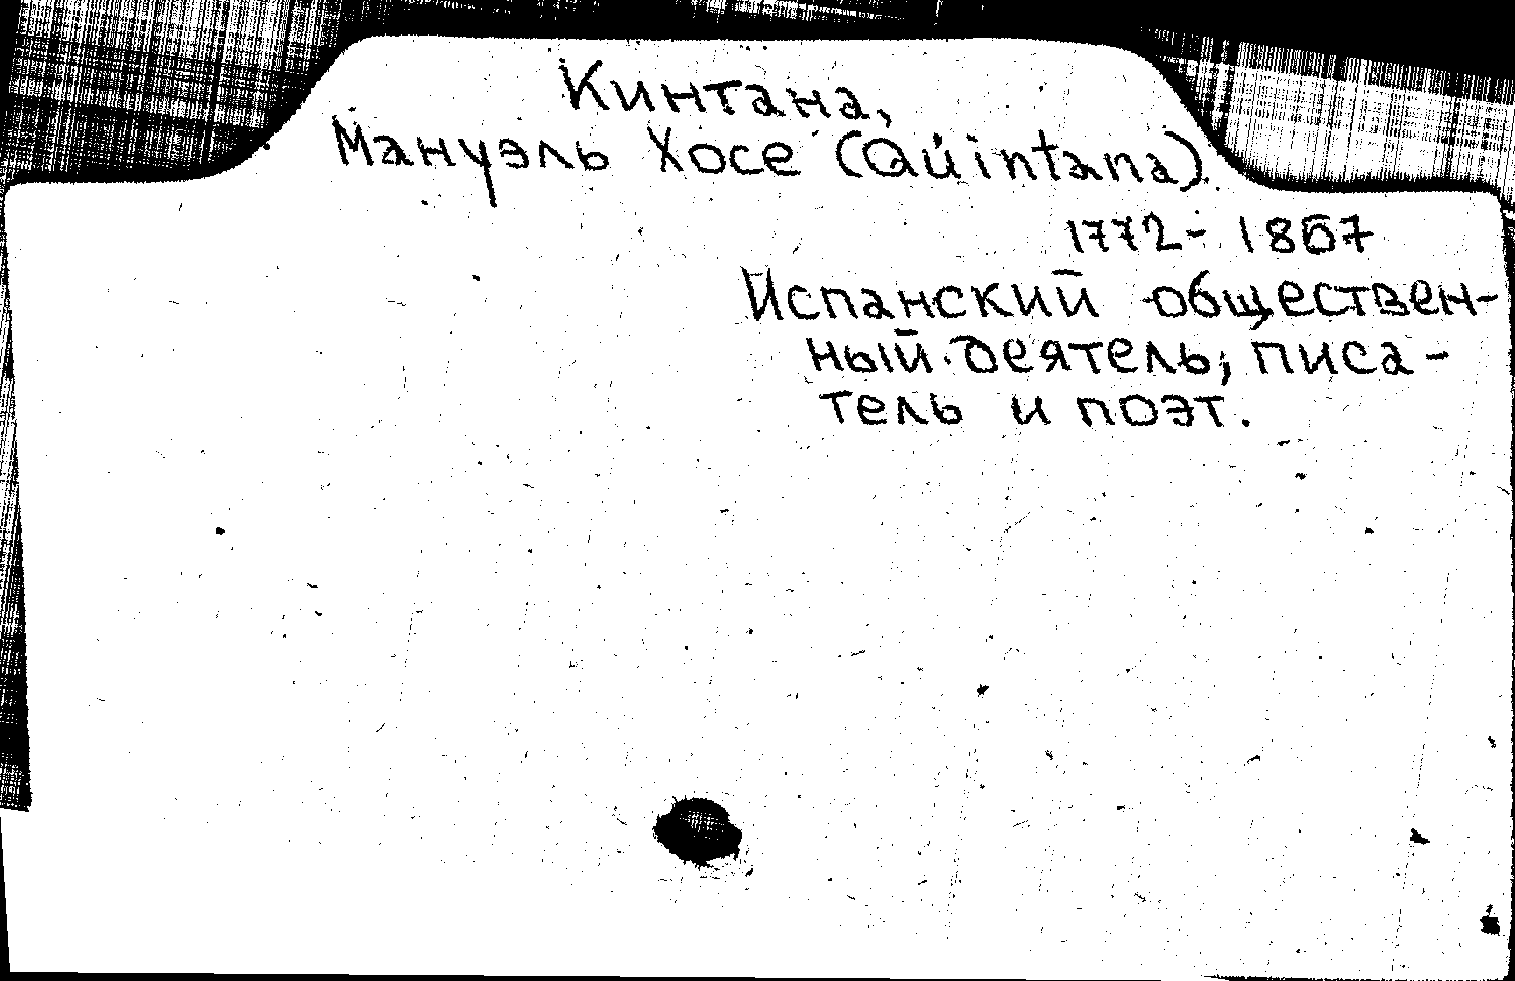 Кинтана,
Мануэль Хосе (Quintana)
1772 - 1857
Испанский обществен-
ный деятель, писа-
тель и поэт.